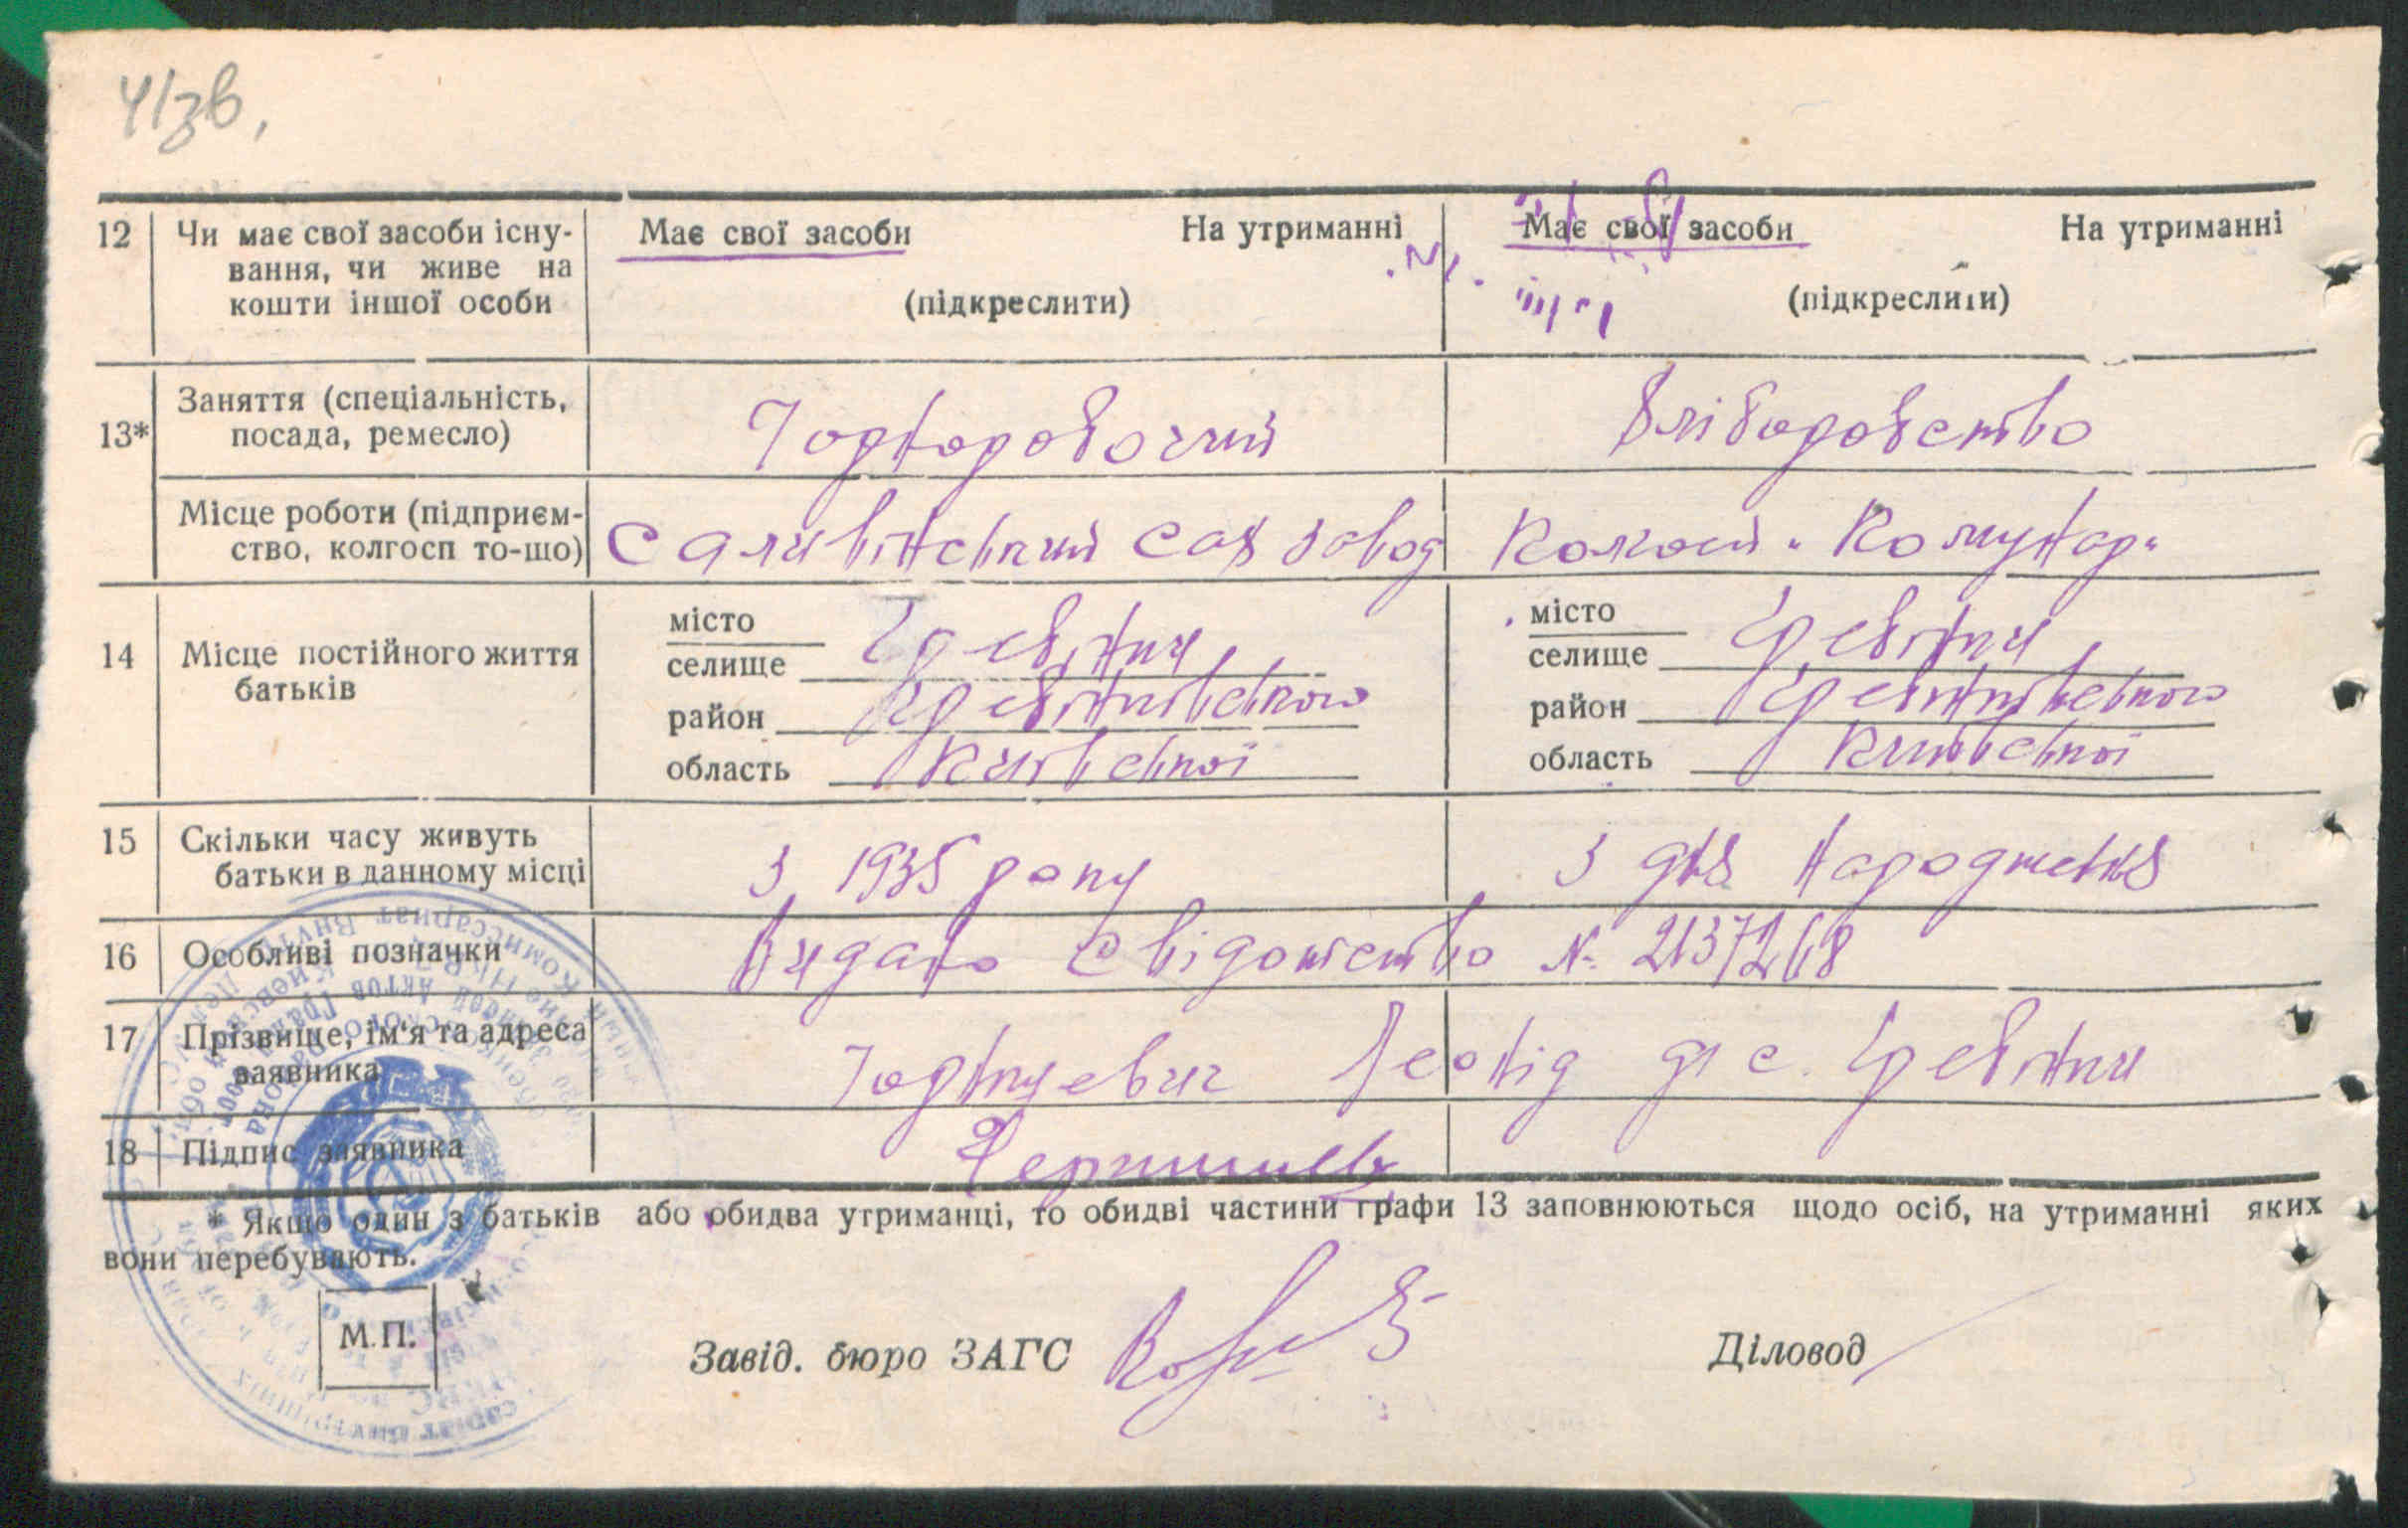 41зв.
12 Чи має свої засоби існу- Має свої засоби На утриманні Має свої засоби На утриманні
вання, чи живе на
кошти іншої особи (підкреслити) (підкреслити)
Заняття (спеціальність,
13* посада, ремесло) Чорноробочий Хліборобство
Місце роботи (підприєм-
ство, колгосп то-що) Саливінський сах завод Колгосп "Комунар"
14 Місце постійного життя
батьків
місто місто
селище Гребінки селище Гребінки
район Гребінківського район Гребінківського
область Київської область Київської
15 Скільки часу живуть
батьки в данному місці З 1935 року З дня народження
16 Особливі позначки Видано свідоцтво № 2137268
17 Прізвище, ім'я та адреса
заявника Леонід с. Гребінки
18 Підпис заявника
* Якщо один з батьків або обидва утриманці, то обидві частини графи 13 заповнюються щодо осіб, на утриманні яких
вони перебувають.
М.П.
Завід. бюро ЗАГС Діловод